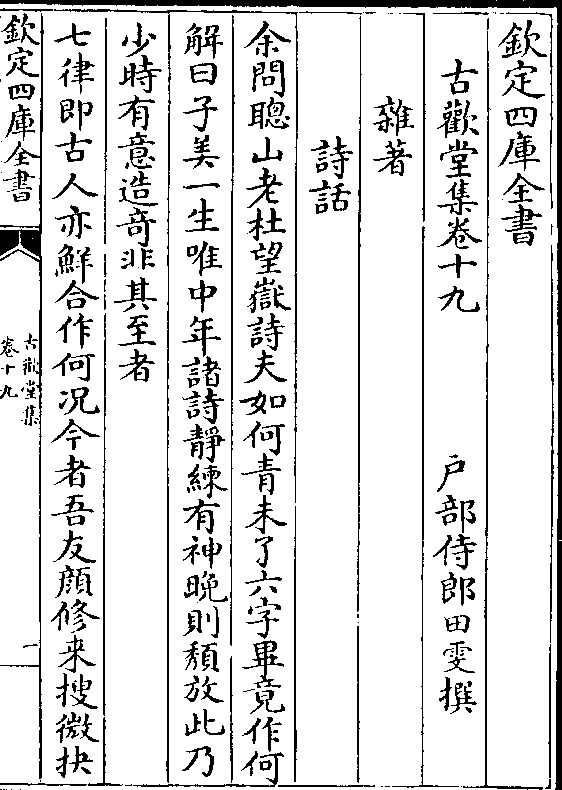 欽定四庫全書
古歡堂集卷十九　戶部侍郎田雯撰
雜著
詩話
余問聰山老杜望嶽詩夫如何青未了六字畢竟作何
解曰子美一生唯中年諸詩靜練有神晩則頹放此乃
少時有意造竒非其至者
七律即古人亦鮮合作何况今者吾友顔修来搜微抉
欽定四庫全書
古歡堂集
卷十九
一